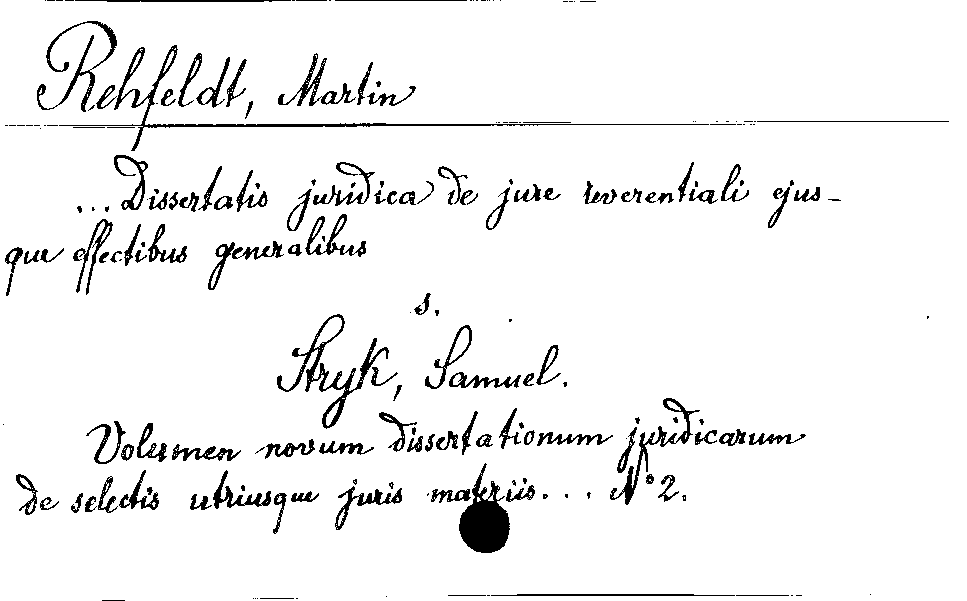 Rehfeldt, Martin
... Dissertatis juridica de jure reverentiali ejus-
que effectibus generalibus
s.
Stryk, Samuel.
Volumen novum dissertationum juridicarum
de selectis utriusque juris materiis... No 2.